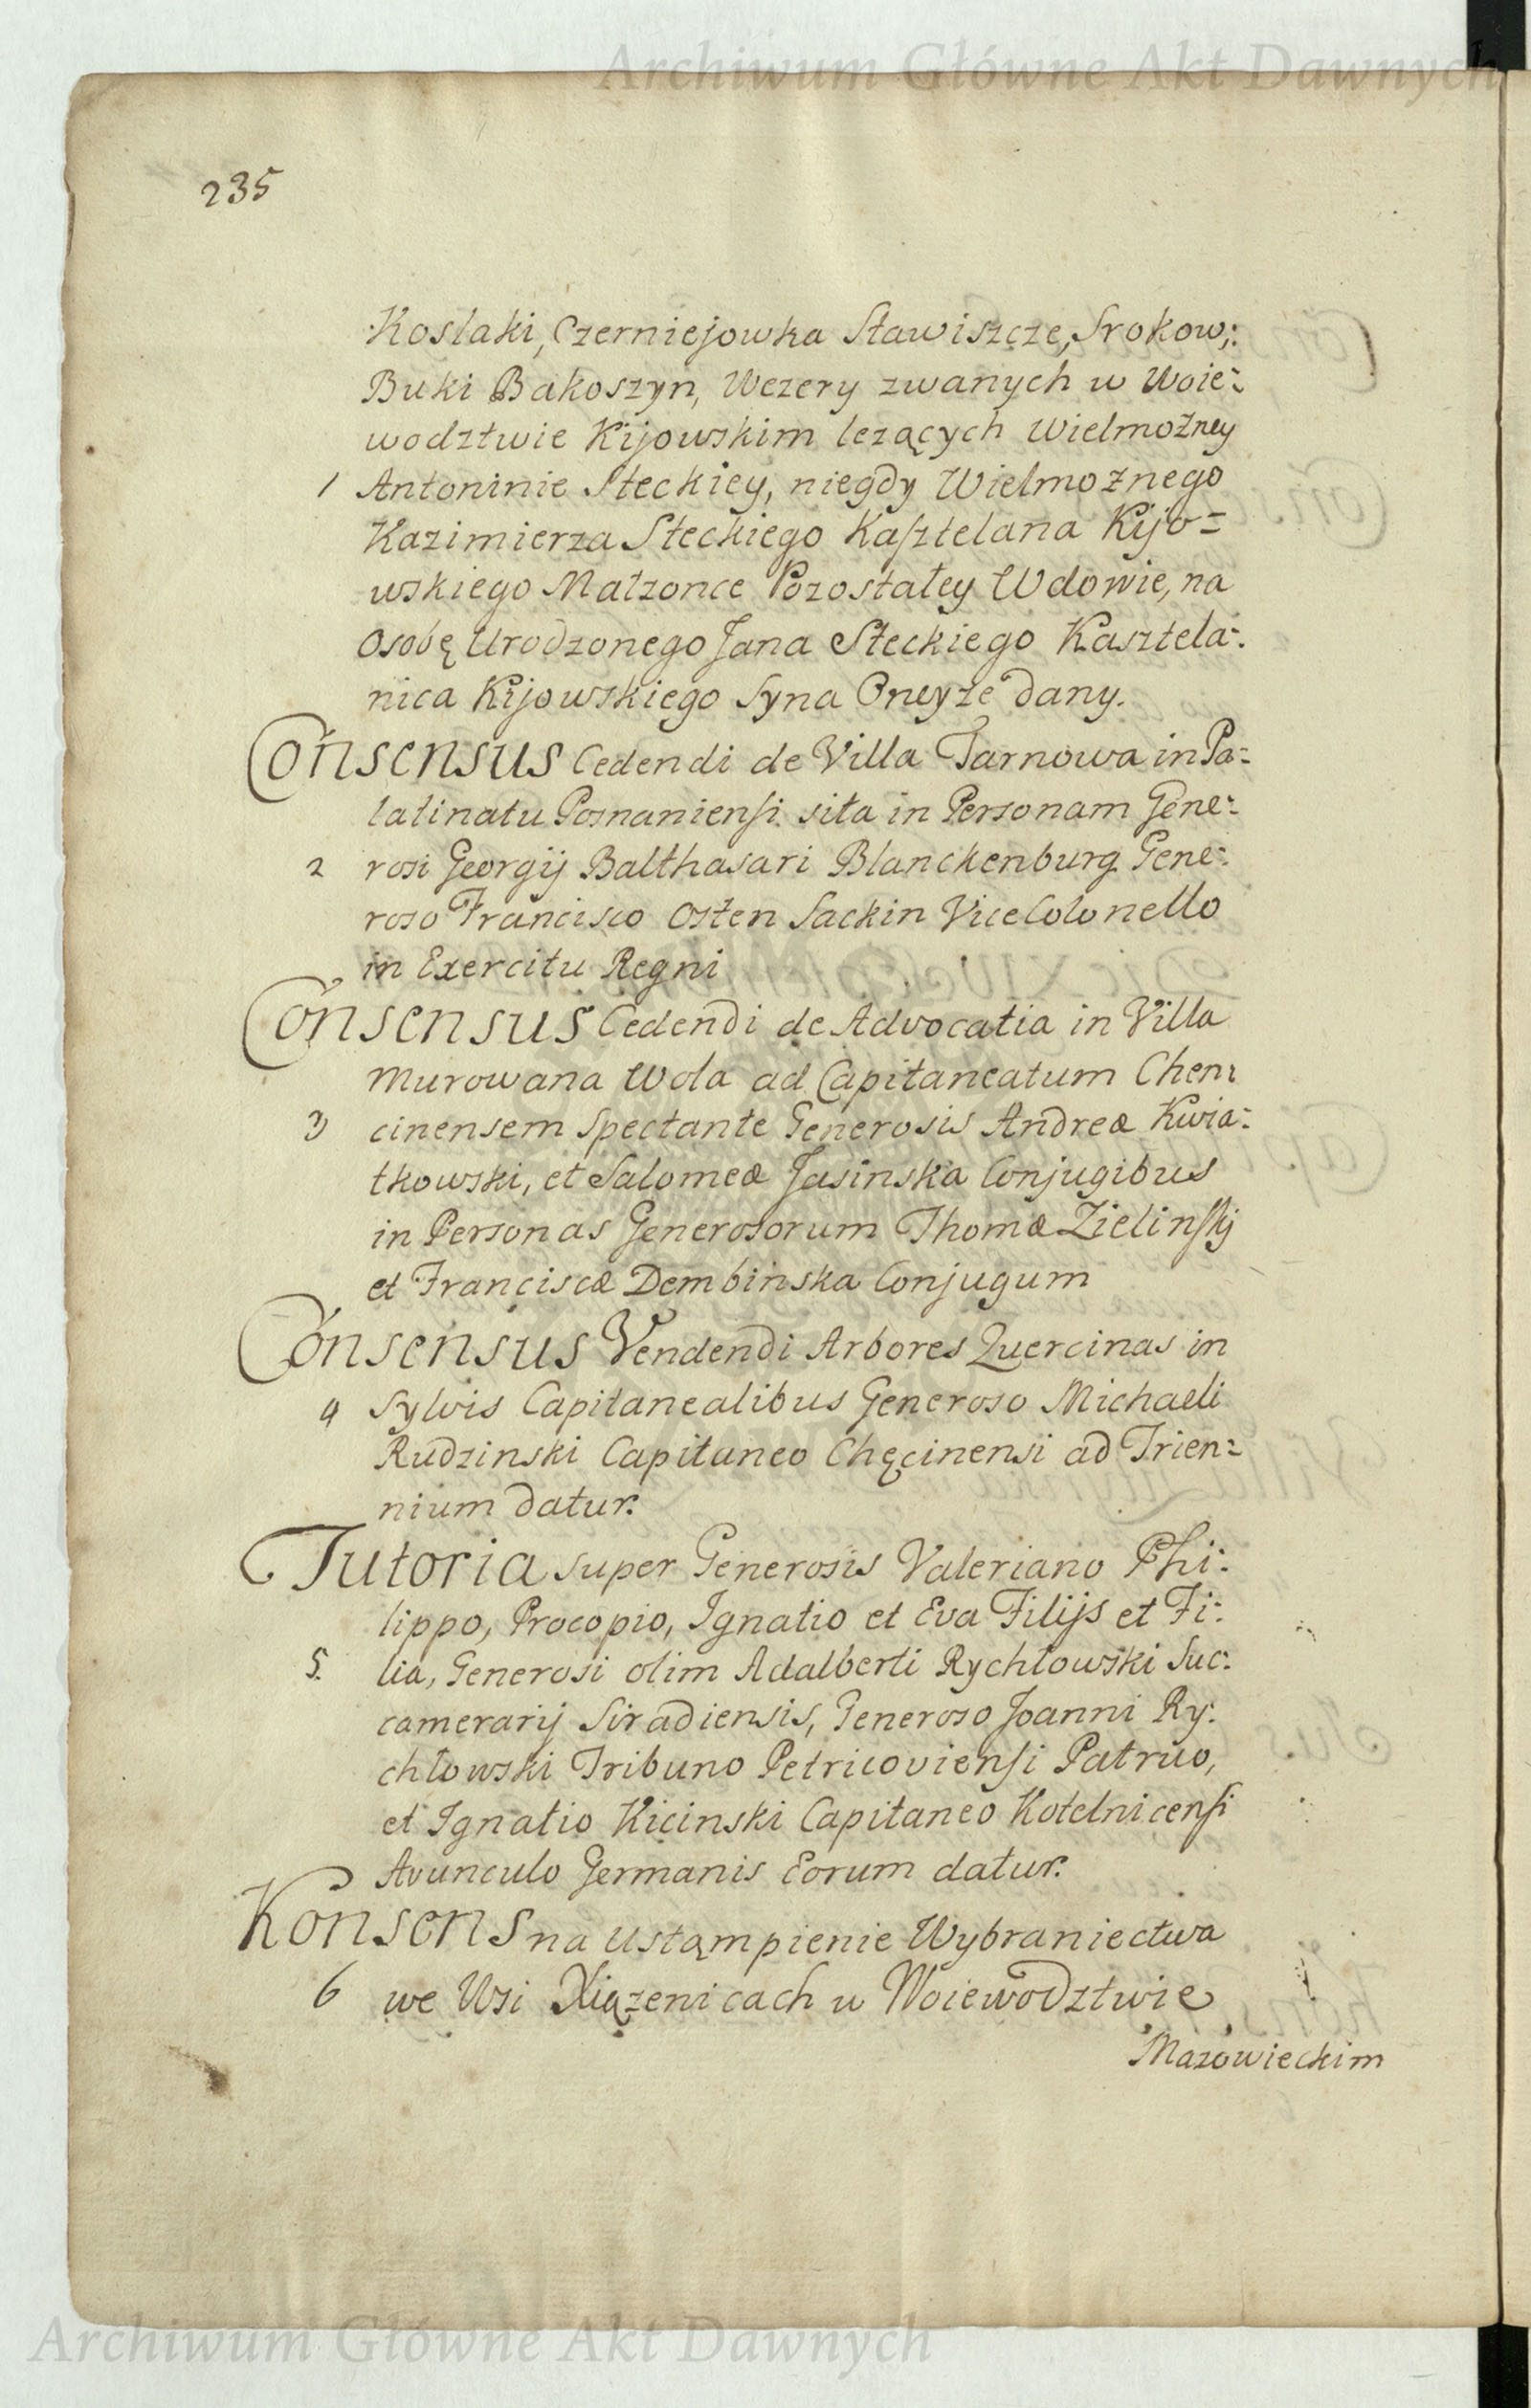 Archiwum Główne Akt Dawnych
235
Koslaki, Czerniejowka Stawiszcze, Srokow,:
Buki Bakoszyn, Wezery zwanych w Woie:
wodztwie Kijowskim lezących Wielmożney
1 Antoninie Steckiey, niegdy Wielmożnego
Kazimierza Steckiego Kasztelana Kijo=
wskiego Małzonce Pozostałey Wdowie, na
Osobę Urodzonego Jana Steckiego Kasztela:
nica Kijowskiego Syna Oneyże dany.
Consensus Cedendi de Villa Tarnowa in Pa=
latinatu Posnaniensi sita in Personam Gene:
2 rosi Georgij Balthasari Blanckenburg Gene:
roso Francisco Osten Sackin ViceColonello
in Exercitu Regni
Consensus Cedendi de Advocatia in Villa
Murowana Wola ad Capitaneatum Chen:
3 cinensem Spectante Generosis Andreæ Kwia:
tkowski, et Salomeæ Jasinska Conjugibus
in Personas Generosorum Thomæ Zielinskij
et Franciscæ Dembinska Conjugum
Consensus Vendendi Arbores Quercinas in
4 Sylvis Capitanealibus Generoso Michaeli
Rudzinski Capitaneo Chęcinensi ad Trien=
nium datur.
Tutoria super Generosis Valeriano Phi:
lippo, Procopio, Ignatio et Eva Filijs et Fi:
5. lia, Generosi olim Adalberti Rychłowski Suc:
camerarij Siradiensis, Generoso Joanni Ry:
chłowski Tribuno Petricoviensi Patruo,
et Ignatio Kicinski Capitaneo Kotelnicensi
Avunculo Germanis Eorum datur.
Konsens na Ustąmpienie Wybraniectwa
6 we Wsi Xiązenicach w Woiewodztwie
Mazowieckim
Archiwum Główne Akt Dawnych